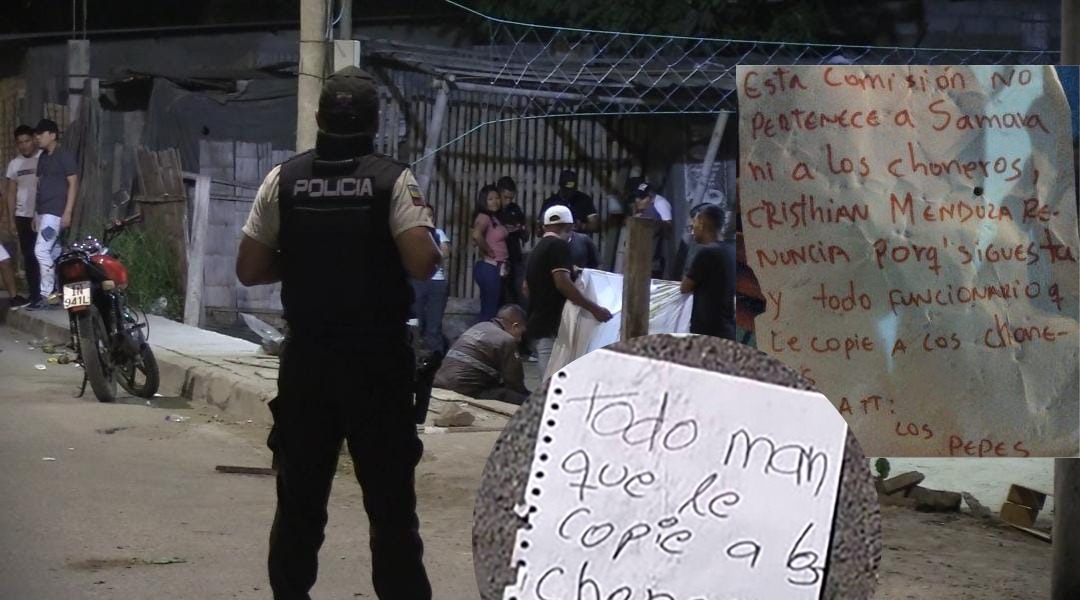 POLICIA
IN
941L
Esta Comisión NO
PERTENECE a Samara
ni a los choneros,
CRISTHIAN MENDOZA RE-
NUNCIA Porq' sigues tu
y todo FUNCIONARIO q
le copie A los chone-
s
ATT:
LOS PEPES
todo man
que le
copie a los